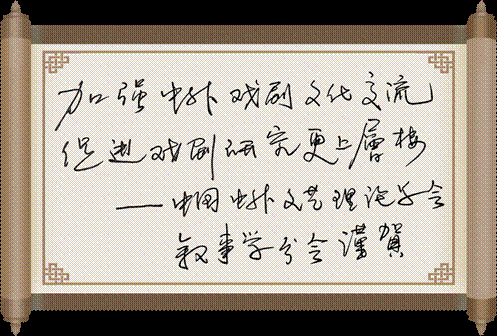 加强中外戏剧文化交流
促进戏剧研究更上層楼
——中国中外文艺理论学会
叙事学分会 谨賀